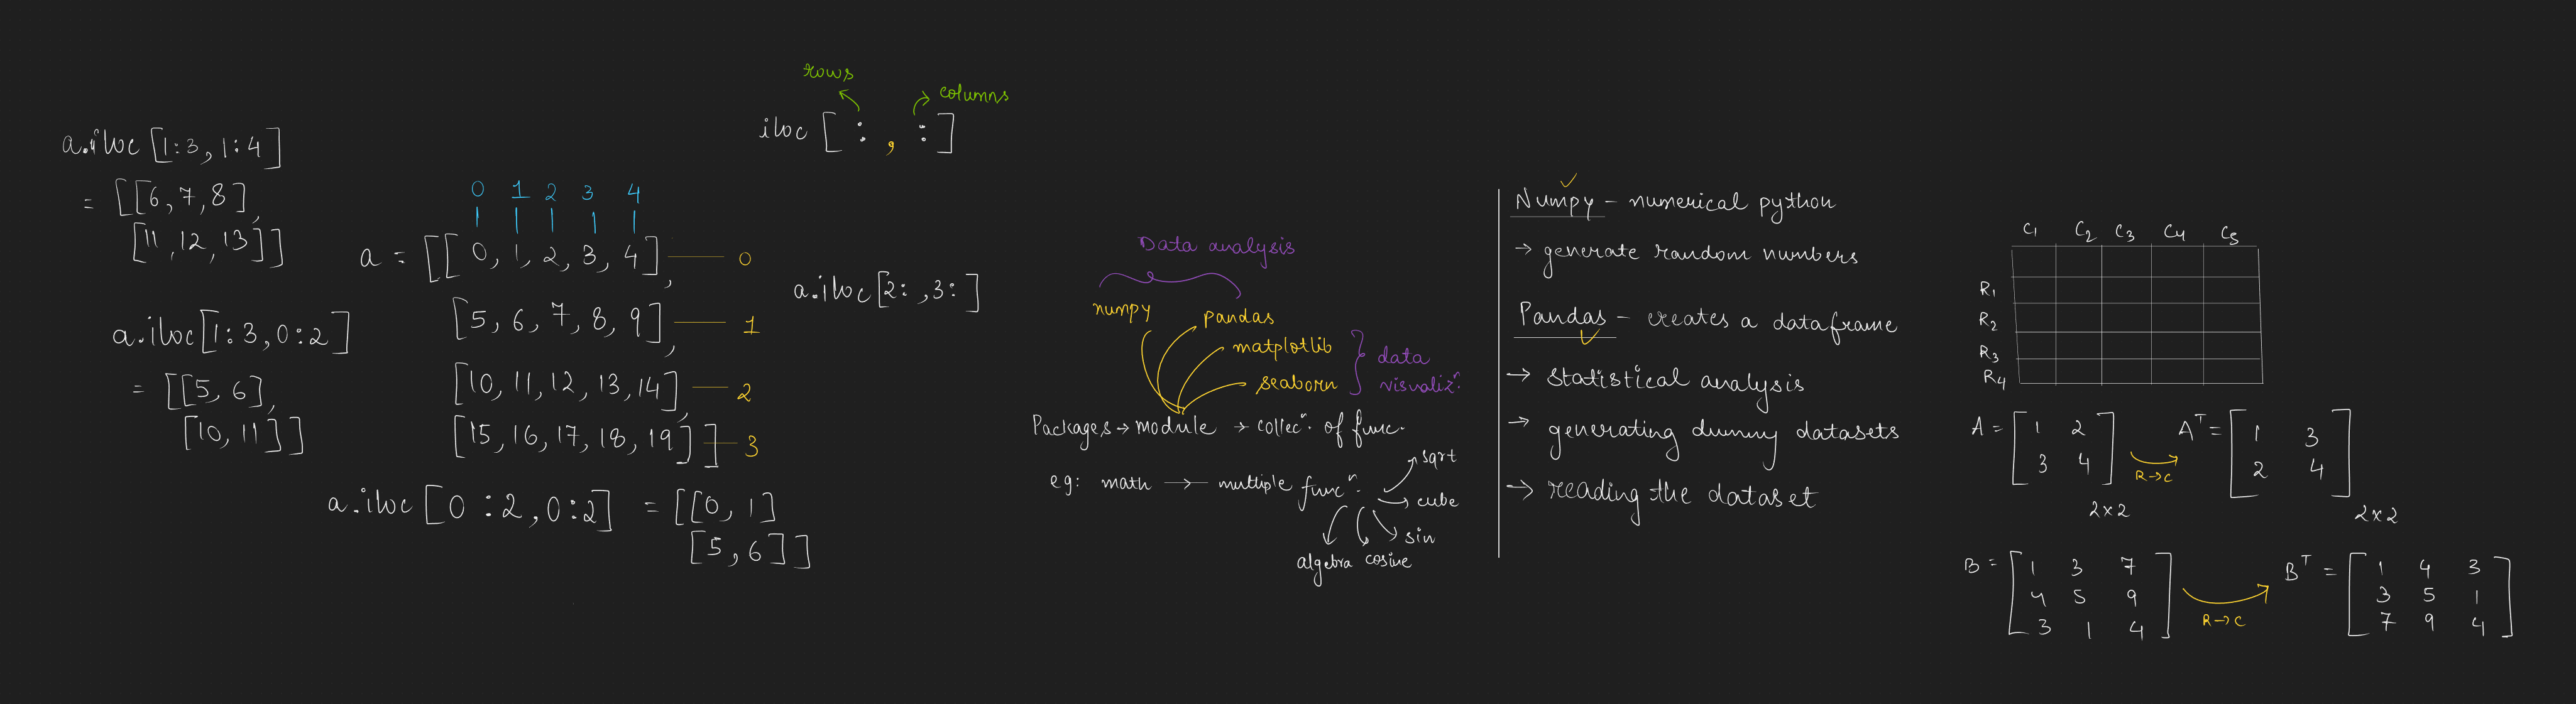 a.iloc[1:3, 1:4]
= [[6, 7, 8],
[11, 12, 13]]
a.iloc[1:3, 0:2]
= [[5, 6],
[10, 11]]
rows
columns
iloc [ : , : ]
0 1 2 3 4
a = [[0, 1, 2, 3, 4], 0
[5, 6, 7, 8, 9], 1
[10, 11, 12, 13, 14], 2
[15, 16, 17, 18, 19]] 3
a.iloc[2: , 3:]
a.iloc[0:2, 0:2] = [[0, 1]
[5, 6]]
Data analysis
numpy
pandas
matplotlib
seaborn
data
visualizⁿ.
Packages → module → collecⁿ. of func.
eg: math → multiple funcⁿ.
sqrt
cube
sin
cosine
algebra
Numpy - numerical python
→ generate random numbers
Pandas - creates a dataframe
→ statistical analysis
→ generating dummy datasets
→ reading the dataset
C1 C2 C3 C4 C5
R1
R2
R3
R4
A = [1 2
3 4]
2×2
R→C
Aᵀ = [1 3
2 4]
2×2
B = [1 3 7
4 5 9
3 1 4]
R→C
Bᵀ = [1 4 3
3 5 1
7 9 4]